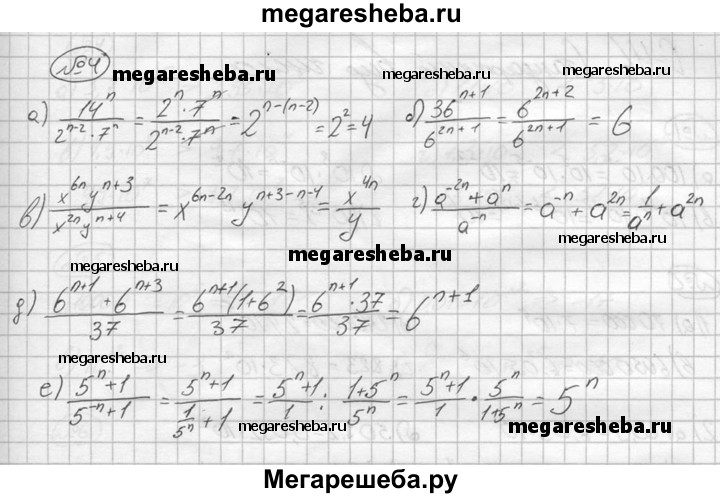 megaresheba.ru
№4
megaresheba.ru megaresheba.ru
а) 14ⁿ/(2ⁿ⁻²·7ⁿ) = (2ⁿ·7ⁿ)/(2ⁿ⁻²·7ⁿ) = 2ⁿ⁻⁽ⁿ⁻²⁾ = 2² = 4 б) 36ⁿ⁺¹/6²ⁿ⁺¹ = 6²ⁿ⁺²/6²ⁿ⁺¹ = 6
megaresheba.ru megaresheba.ru
в) x⁶ⁿyⁿ⁺³/(x²ⁿyⁿ⁺⁴) = x⁶ⁿ⁻²ⁿ yⁿ⁺³⁻ⁿ⁻⁴ = x⁴ⁿ/y г) (a⁻²ⁿ+aⁿ)/a⁻ⁿ = a⁻ⁿ + a²ⁿ = 1/aⁿ + a²ⁿ
megaresheba.ru megaresheba.ru
megaresheba.ru
д) (6ⁿ⁺¹+6ⁿ⁺³)/37 = 6ⁿ⁺¹(1+6²)/37 = (6ⁿ⁺¹·37)/37 = 6ⁿ⁺¹
megaresheba.ru megaresheba.ru
е) (5ⁿ+1)/(5⁻ⁿ+1) = (5ⁿ+1)/(1/5ⁿ+1) = (5ⁿ+1)/1 : (1+5ⁿ)/5ⁿ = (5ⁿ+1)/1 · 5ⁿ/(1+5ⁿ) = 5ⁿ
megaresheba.ru megaresheba.ru
Мегарешеба.ру